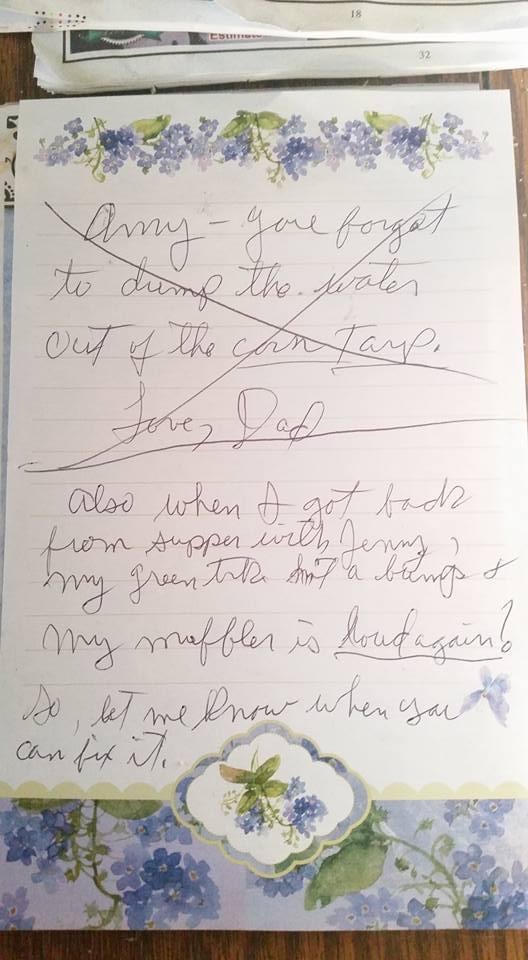 18
Estimate
32
Amy - you forgot
to dump the water
out of the corn Tarp.
Love, Dad
Also when I got back
from supper with Jenny,
my green trk hit a bump &
my muffler is loud again!
So, let me know when you
can fix it.